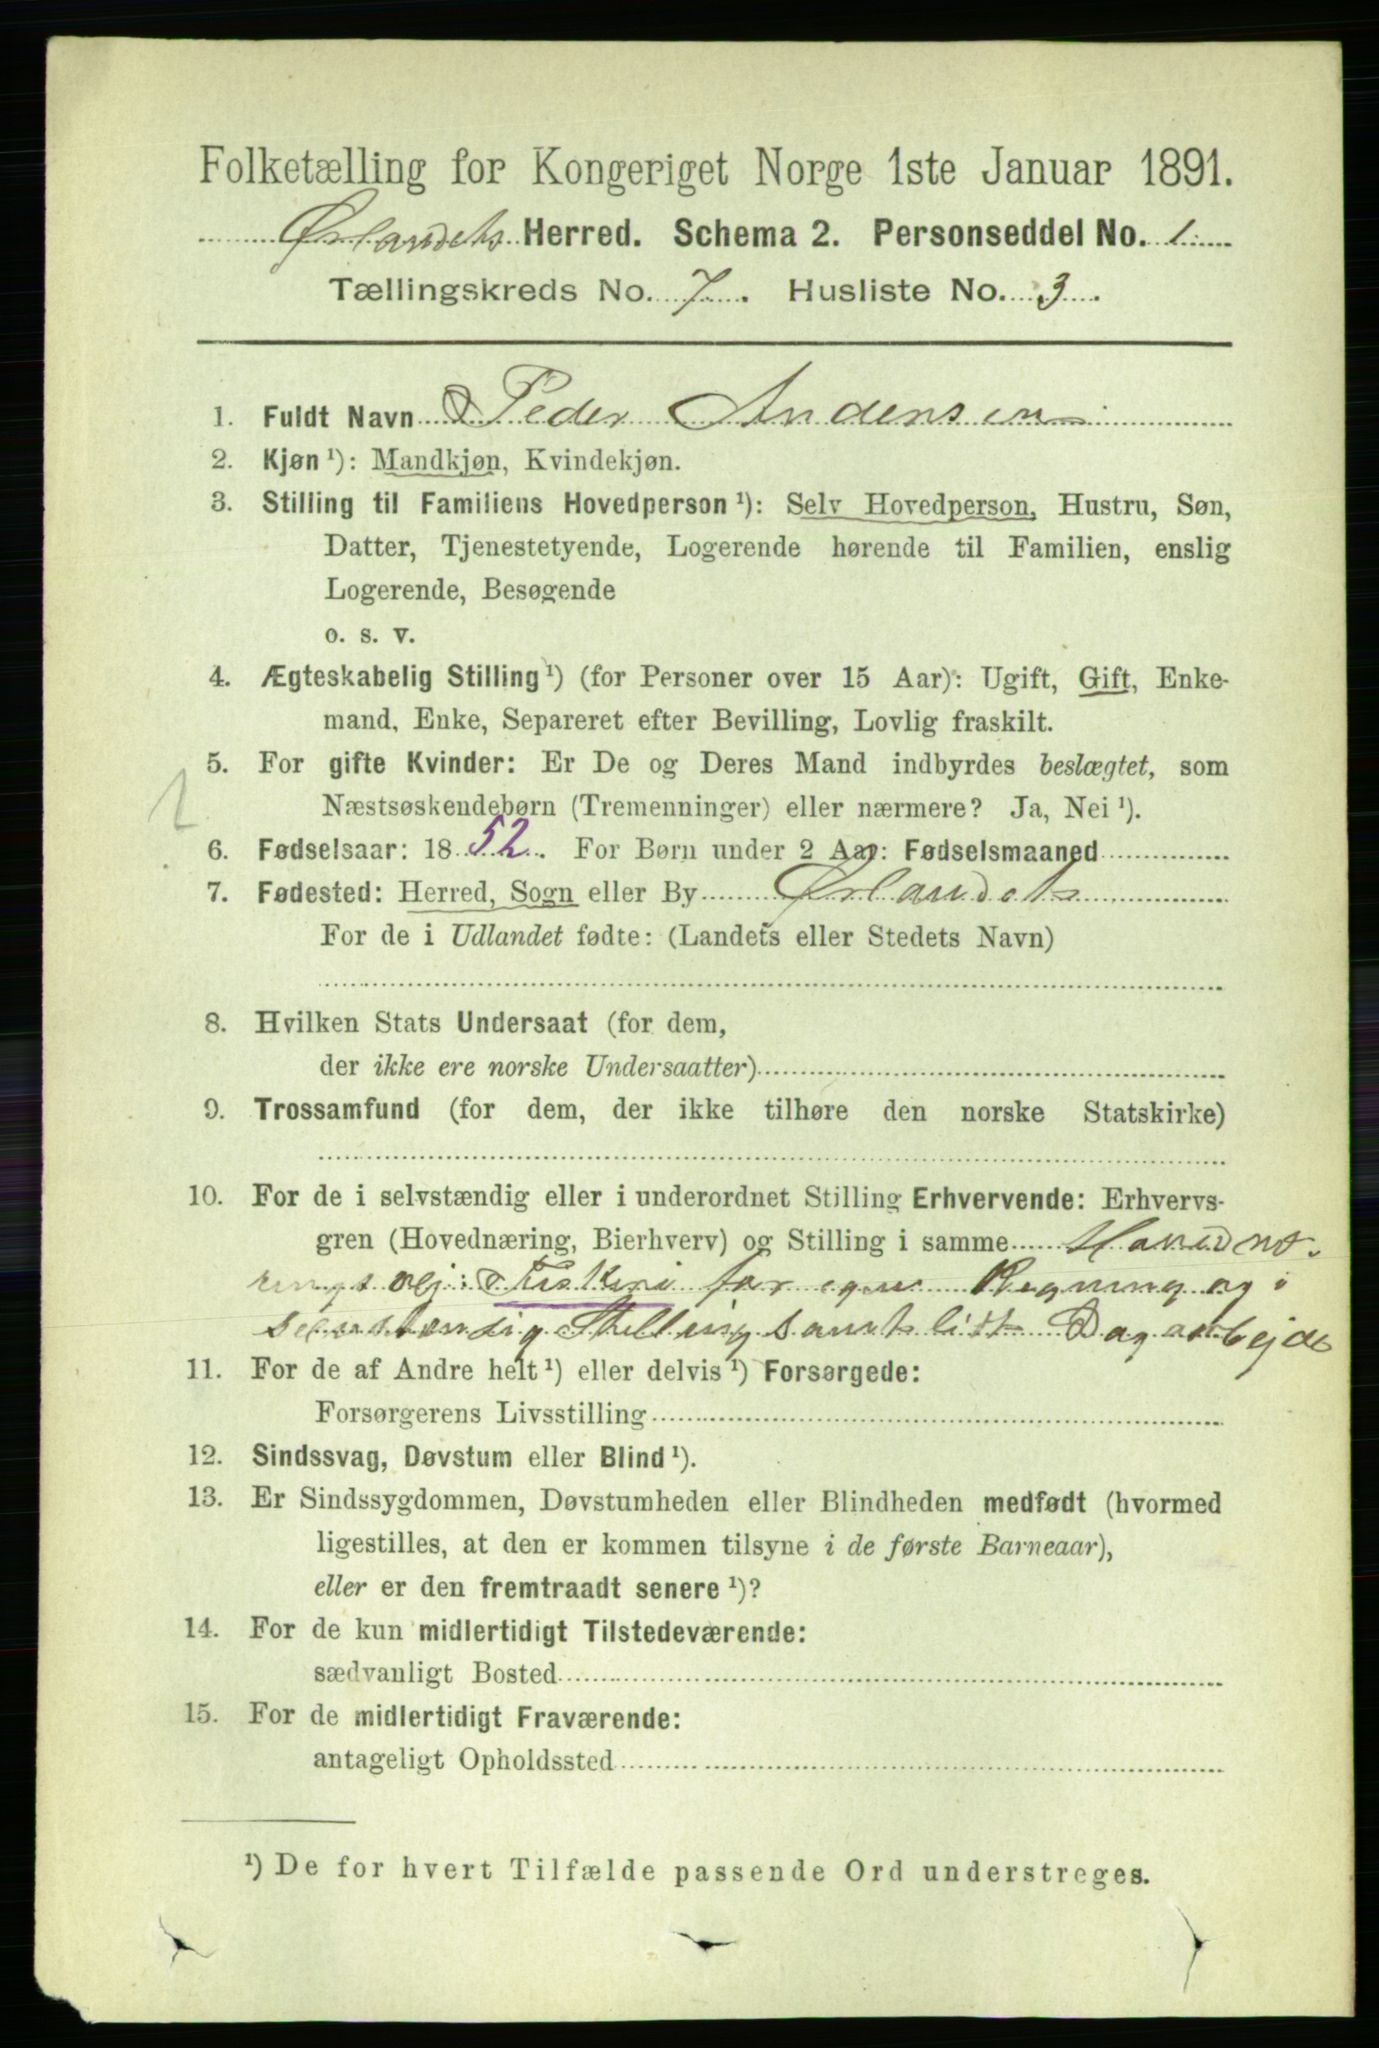 Folketælling for Kongeriget Norge 1ste Januar 1891.
Ørlandets Herred. Schema 2. Personseddel No. 1
Tællingskreds No. 7. Husliste No. 3.
1. Fuldt Navn Peder Andersen
2. Kjøn ¹): Mandkjøn, Kvindekjøn.
3. Stilling til Familiens Hovedperson ¹): Selv Hovedperson, Hustru, Søn,
Datter, Tjenestetyende, Logerende hørende til Familien, enslig
Logerende, Besøgende
o. s. v.
4. Ægteskabelig Stilling ¹) (for Personer over 15 Aar): Ugift, Gift, Enke-
mand, Enke, Separeret efter Bevilling, Lovlig fraskilt.
5. For gifte Kvinder: Er De og Deres Mand indbyrdes beslægtet, som
Næstsøskendebørn (Tremenninger) eller nærmere? Ja, Nei ¹).
6. Fødselsaar: 1852. For Børn under 2 Aar: Fødselsmaaned
7. Fødested: Herred, Sogn eller By Ørlandets
For de i Udlandet fødte: (Landets eller Stedets Navn)
8. Hvilken Stats Undersaat (for dem,
der ikke ere norske Undersaatter)
9. Trossamfund (for dem, der ikke tilhøre den norske Statskirke)
10. For de i selvstændig eller i underordnet Stilling Erhvervende: Erhvervs-
gren (Hovednæring, Bierhverv) og Stilling i samme
Fiskeri for egen Regning og i
selvstendig Stilling samt lidt Dagarbejde
11. For de af Andre helt ¹) eller delvis ¹) Forsørgede:
Forsørgerens Livsstilling
12. Sindssvag, Døvstum eller Blind ¹).
13. Er Sindssygdommen, Døvstumheden eller Blindheden medfødt (hvormed
ligestilles, at den er kommen tilsyne i de første Barneaar),
eller er den fremtraadt senere ¹)?
14. For de kun midlertidigt Tilstedeværende:
sædvanligt Bosted
15. For de midlertidigt Fraværende:
antageligt Opholdssted
¹) De for hvert Tilfælde passende Ord understreges.